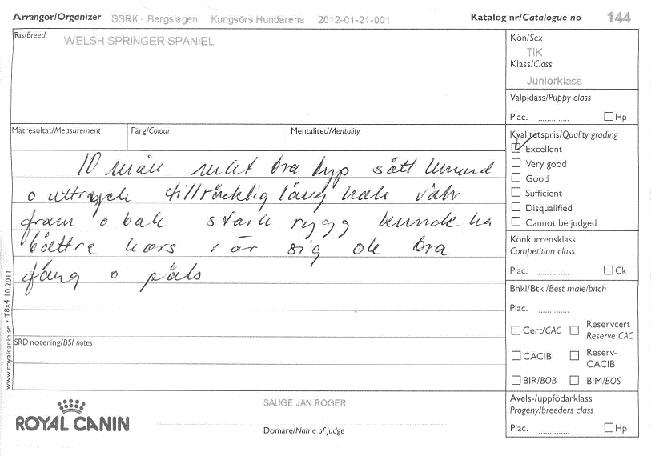 Arrangör/Organizer SSRK - Bergslagen Kungsörs Hundarena 2012-01-21-001 Katalog nr/Catalogue no 144
Ras/Breed WELSH SPRINGER SPANIEL
Kön/Sex
TIK
Klass/Class
Juniorklass
Valpklass/Puppy class
Plac. ............ Hp
Mätresultat/Measurement Färg/Colour Mentalitet/Mentality
Kvalitetspris/Quality grading
Excellent
Very good
Good
Sufficient
Disqualified
Cannot be judged
10 mån mket bra typ sött huvud
o uttryck tillräcklig lång hals välv
fram o bak stark rygg kunde ha
bättre kors rör sig ok bra
päls
Konkurrensklass
Competition class
Plac. ............ Ck
Bhkl/Btk /Best male/bitch
Plac. ............
Cert/CAC Reservcert
Reserve CAC
CACIB Reserv-
CACIB
BIR/BOB BIM/BOS
SRD notering/BSI notes
Avels-/uppfödarklass
Progeny/breeders class
Plac. ............ Hp
ROYAL CANIN
SAUGE JAN ROGER
Domare/Name of judge